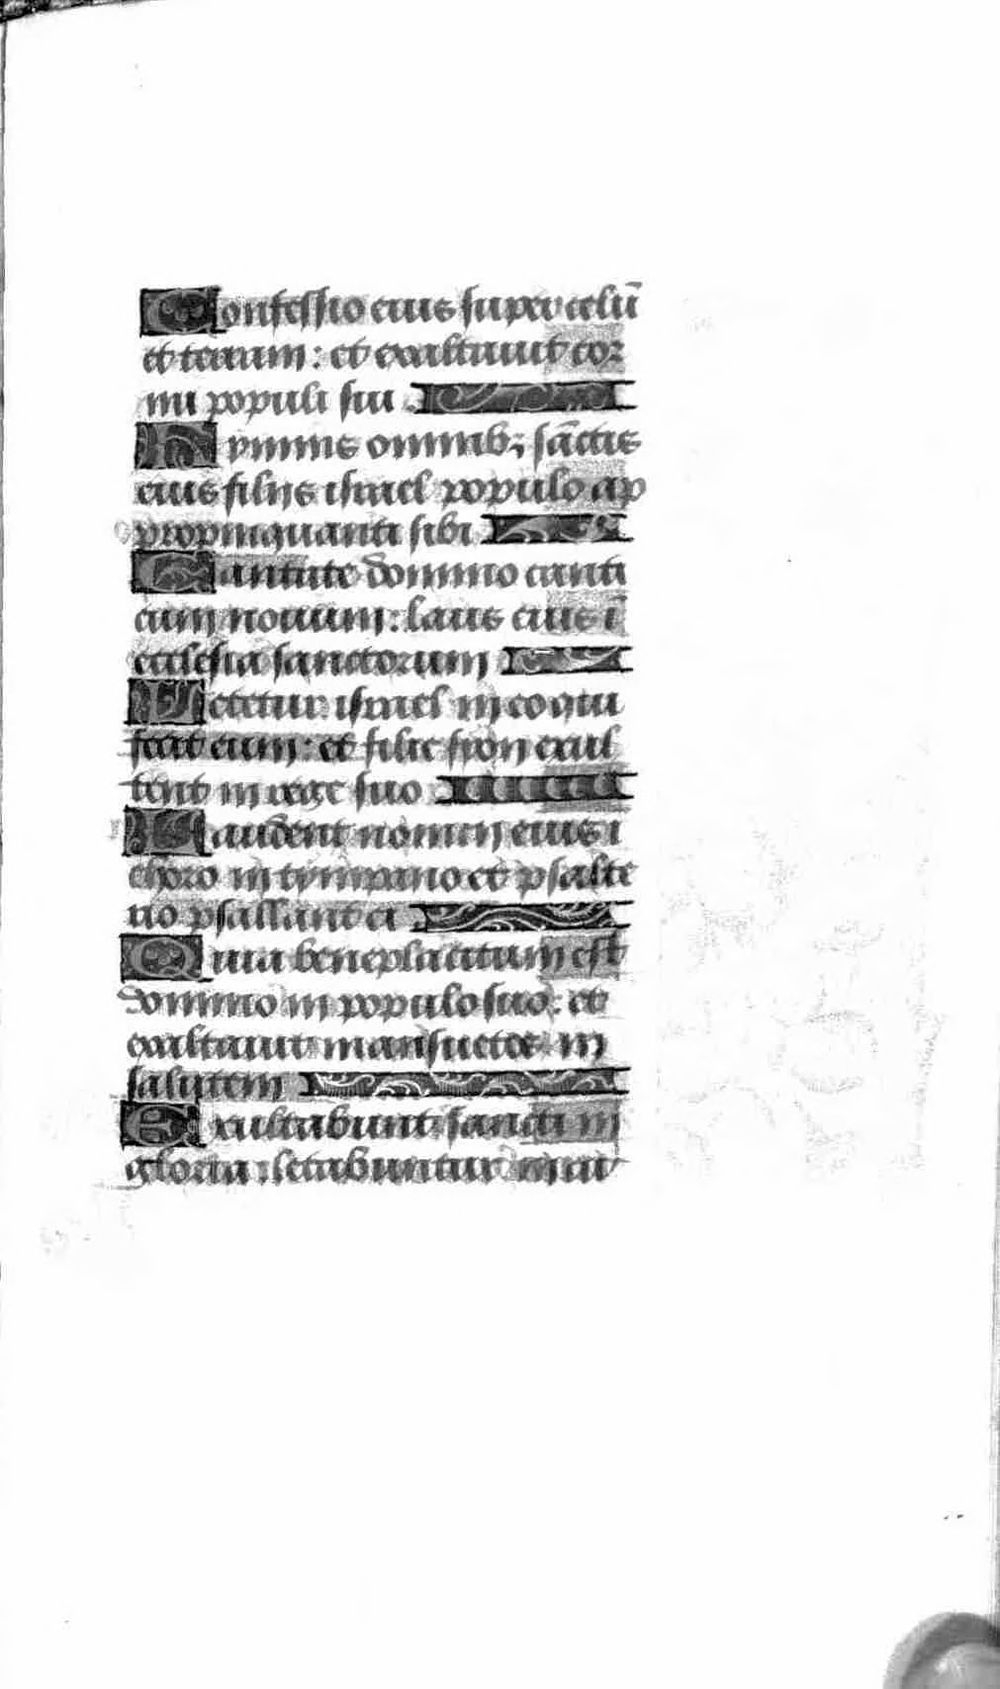 Confessio eius super celū
et terram: et exaltauit cor
nu populi sui
Hymnus omnibꝫ sāctis
eius filijs israel populo ap
propinquanti sibi
Cantate domino canti
cum nouum: laus eius ī
ecclesia sanctorum
Letetur israel in eo qui
fecit eum: et filie syon exul
tent in rege suo
Laudent nomen eius ī
choro in tympano et psalte
rio psallant ei
Quia beneplacitum est
domino in populo suo: et
exaltauit mansuetos in
salutem
Exultabunt sancti in
gloria: letabuntur in cu